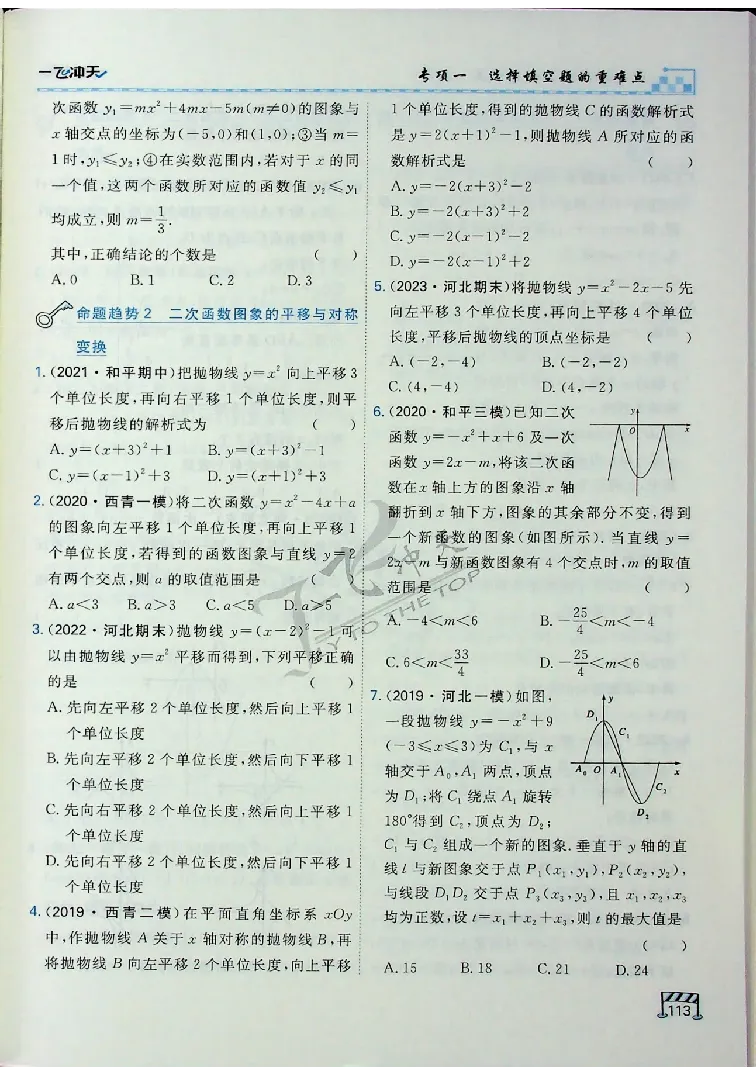 一飞冲天
专项一 选择填空题的重难点
次函数 y₁=mx²+4mx-5m(m≠0)的图象与
x轴交点的坐标为(-5,0)和(1,0);③当 m=
1时,y₁⩽y₂;④在实数范围内,若对于 x 的同
一个值,这两个函数所对应的函数值 y₂⩽y₁
均成立,则 m=1/3.
其中,正确结论的个数是 ( )
A. 0 B. 1 C. 2 D. 3
命题趋势2 二次函数图象的平移与对称
变换
1. (2021·和平期中)把抛物线 y=x² 向上平移3
个单位长度,再向右平移1个单位长度,则平
移后抛物线的解析式为 ( )
A. y=(x+3)²+1 B. y=(x+3)²-1
C. y=(x-1)²+3 D. y=(x+1)²+3
2. (2020·西青一模)将二次函数 y=x²-4x+a
的图象向左平移1个单位长度,再向上平移1
个单位长度,若得到的函数图象与直线 y=2
有两个交点,则 a 的取值范围是 ( )
A. a<3 B. a>3 C. a<5 D. a>5
3. (2022·河北期末)抛物线 y=(x-2)²-1可
以由抛物线 y=x² 平移而得到,下列平移正确
的是 ( )
A. 先向左平移2个单位长度,然后向上平移1
个单位长度
B. 先向左平移2个单位长度,然后向下平移1
个单位长度
C. 先向右平移2个单位长度,然后向上平移1
个单位长度
D. 先向右平移2个单位长度,然后向下平移1
个单位长度
4. (2019·西青二模)在平面直角坐标系 xOy
中,作抛物线 A 关于 x 轴对称的抛物线 B,再
将抛物线 B 向左平移2个单位长度,向上平移
1个单位长度,得到的抛物线 C 的函数解析式
是 y=2(x+1)²-1,则抛物线 A 所对应的函
数解析式是 ( )
A. y=-2(x+3)²-2
B. y=-2(x+3)²+2
C. y=-2(x-1)²-2
D. y=-2(x-1)²+2
5. (2023·河北期末)将抛物线 y=x²-2x-5 先
向左平移3个单位长度,再向上平移4个单位
长度,平移后抛物线的顶点坐标是 ( )
A. (-2,-4) B. (-2,-2)
C. (4,-4) D. (4,-2)
6. (2020·和平三模)已知二次
函数 y=-x²+x+6 及一次
函数 y=2x-m,将该二次函
数在 x 轴上方的图象沿 x 轴
翻折到 x 轴下方,图象的其余部分不变,得到
一个新函数的图象(如图所示). 当直线 y=
2x-m 与新函数图象有4个交点时,m 的取值
范围是 ( )
y
O
x
A. -4<m<6 B. -25/4<m<-4
C. 6<m<33/4 D. -25/4<m<6
7. (2019·河北一模)如图,
一段抛物线 y=-x²+9
(-3⩽x⩽3)为 C₁,与 x
轴交于 A₀,A₁ 两点,顶点
为 D₁;将 C₁ 绕点 A₁ 旋转
180°得到 C₂,顶点为 D₂;
C₁ 与 C₂ 组成一个新的图象. 垂直于 y 轴的直
线 l 与新图象交于点 P₁(x₁,y₁),P₂(x₂,y₂),
与线段 D₁D₂ 交于点 P₃(x₃,y₃),且 x₁,x₂,x₃
均为正数,设 t=x₁+x₂+x₃,则 t 的最大值是
( )
y
D₁
C₁
A₀ O A₁ x
C₂
D₂
A. 15 B. 18 C. 21 D. 24
一飞冲天
FLY TO THE TOP
113